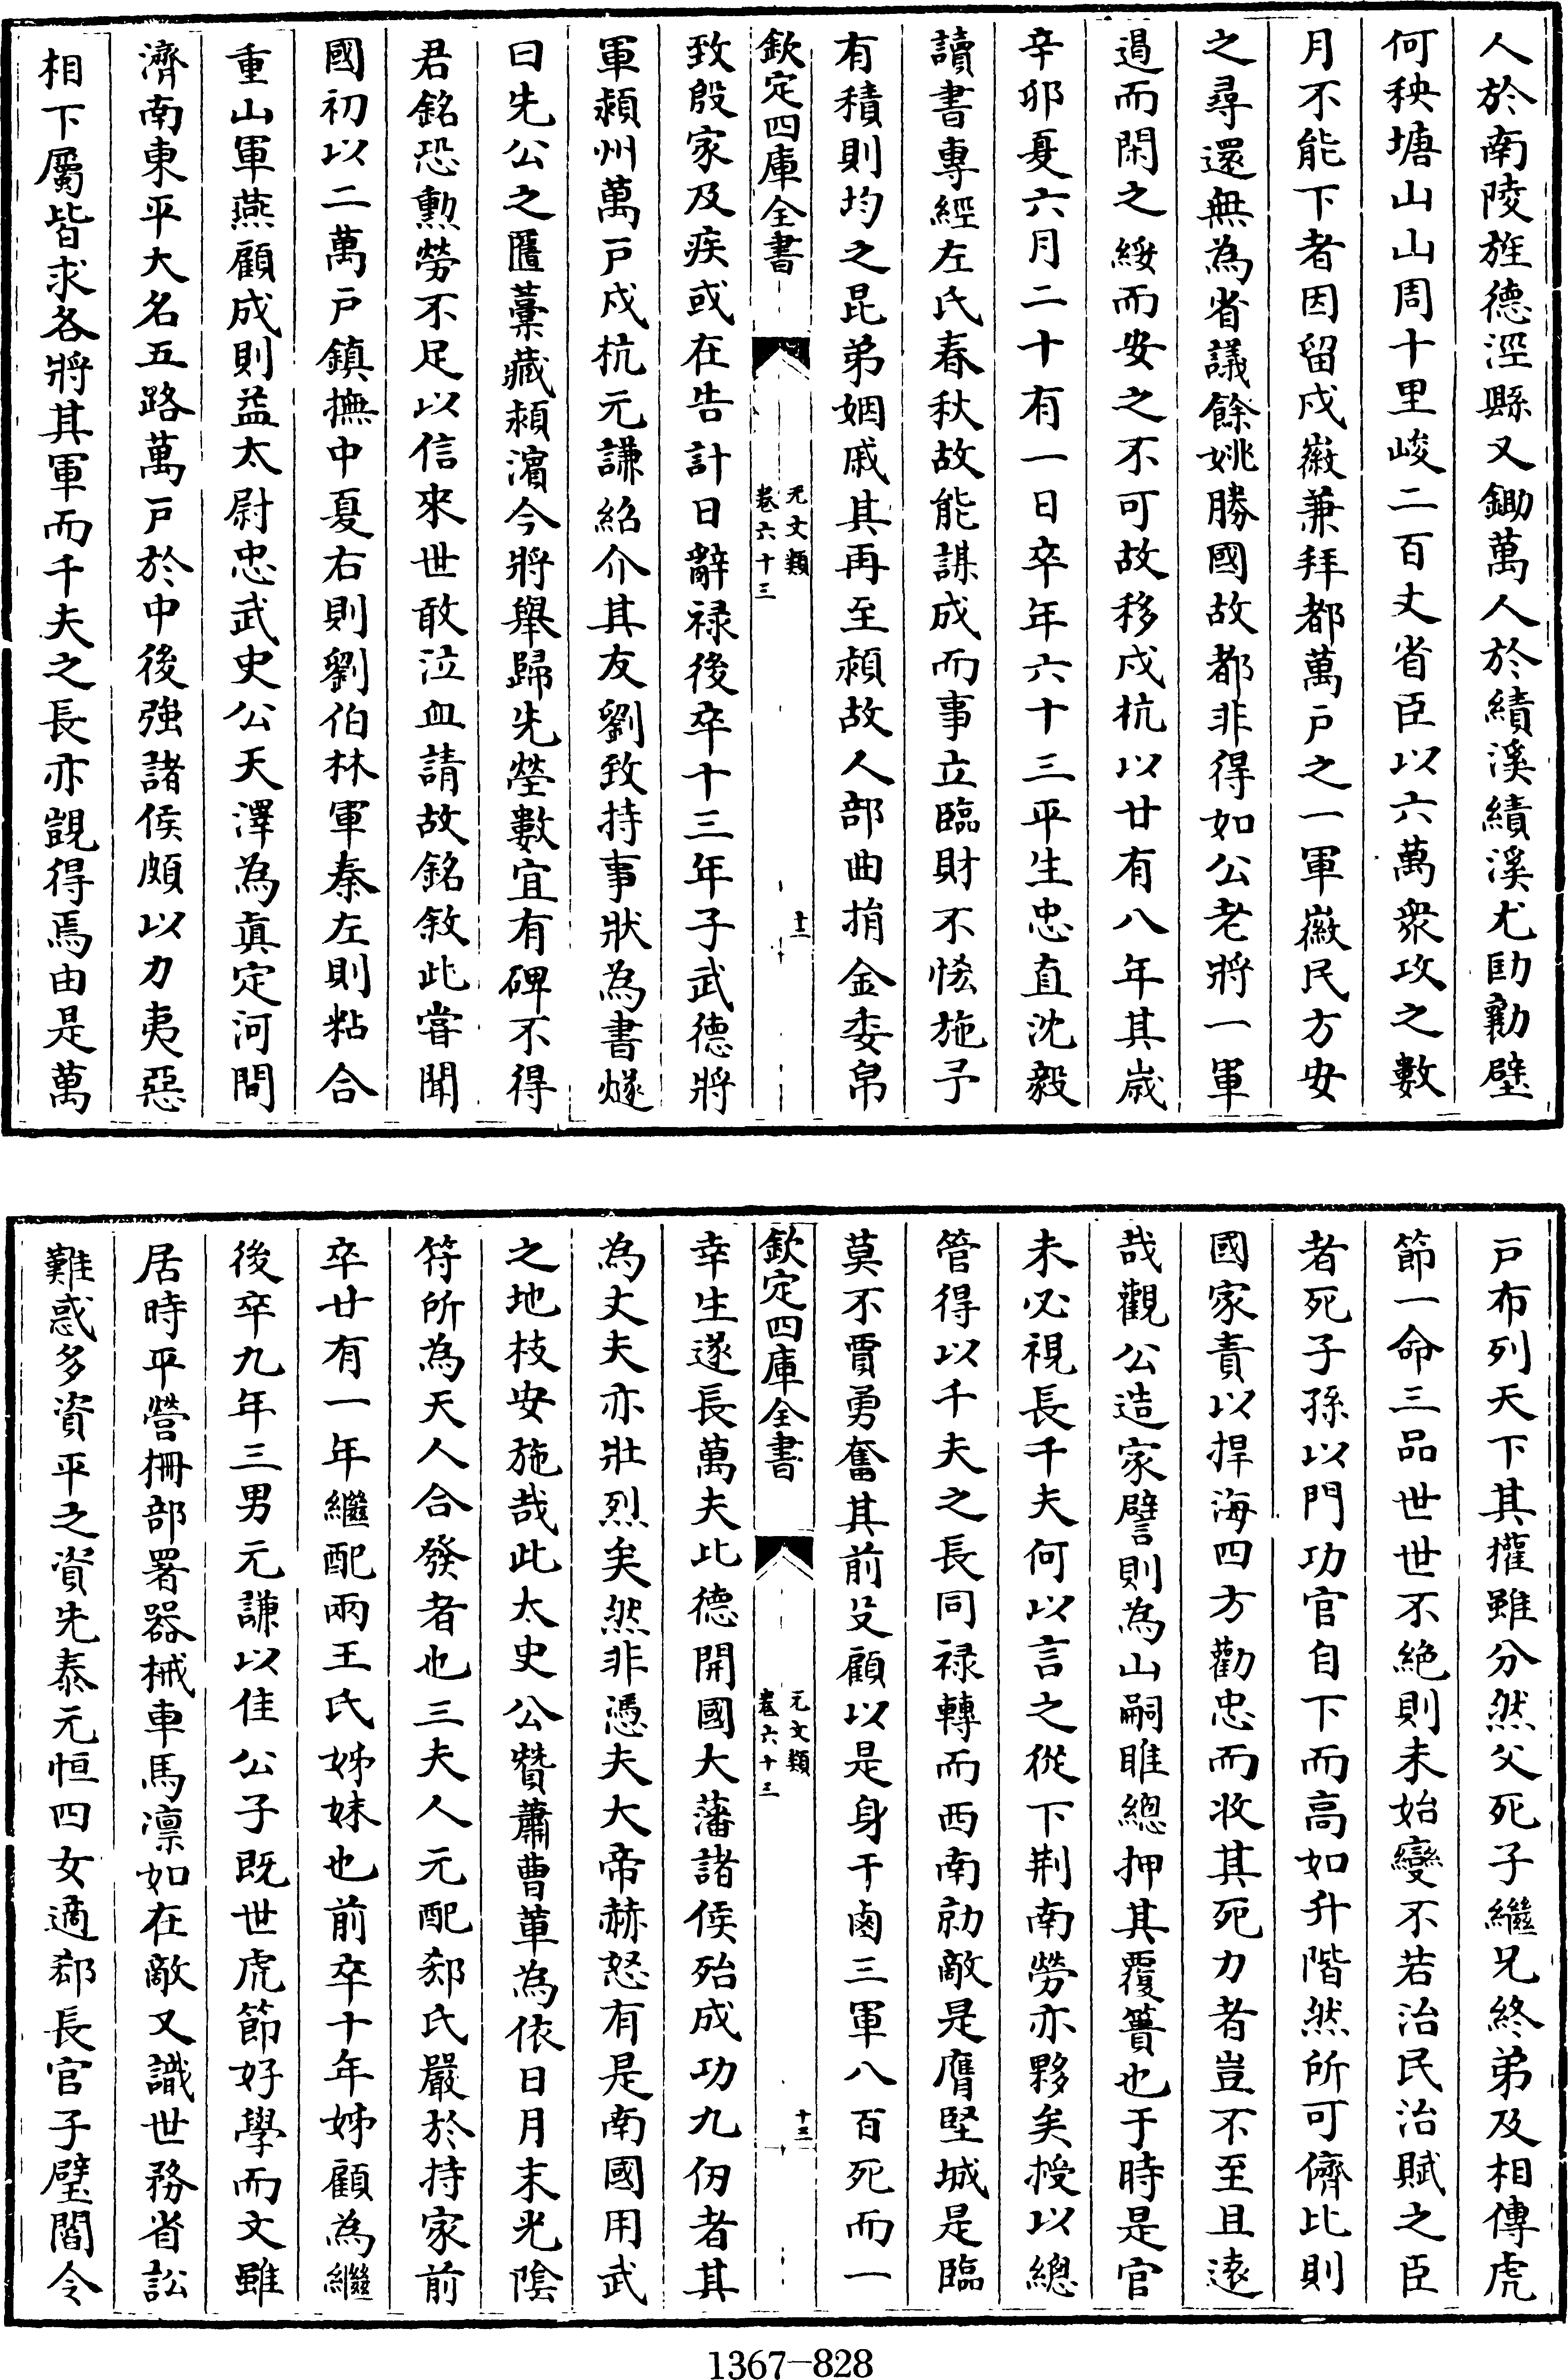 人於南陵旌德涇縣又鋤萬人於績溪績溪尤劻勷壁
何秧塘山山周十里峻二百丈省臣以六萬衆攻之數
月不能下者因留戍徽兼拜都萬戸之一軍徽民方安
之尋還無為省議餘姚勝國故都非得如公老將一軍
遏而閑之綏而安之不可故移戍杭以廿有八年其歳
辛卯夏六月二十有一日卒年六十三平生忠直沈毅
讀書專經左氏春秋故能謀成而事立臨財不恡施予
有積則均之昆弟姻戚其再至潁故人部曲捐金委帛
欽定四庫全書
元文類
卷六十三
十二
致殷家及疾或在告計日辭禄後卒十三年子武德將
軍潁州萬戸戍杭元謙紹介其友劉致持事狀為書燧
曰先公之匶藁藏潁濵今將舉歸先塋數宜有碑不得
君銘恐勲勞不足以信來世敢泣血請故銘敘此嘗聞
國初以二萬戸鎮撫中夏右則劉伯林軍秦左則粘合
重山軍燕顧成則益太尉忠武史公天澤為真定河間
濟南東平大名五路萬戸於中後強諸侯頗以力夷惡
相下屬皆求各將其軍而千夫之長亦覬得焉由是萬
戸布列天下其權雖分然父死子繼兄終弟及相傳虎
節一命三品世世不絶則未始變不若治民治賦之臣
者死子孫以門功官自下而高如升階然所可儕比則
國家責以捍海四方勸忠而收其死力者豈不至且遠
哉觀公造家譬則為山嗣雎總押其覆簣也于時是官
未必視長千夫何以言之從下荆南勞亦夥矣授以總
管得以千夫之長同禄轉而西南勍敵是膺堅城是臨
莫不賈勇奮其前殳顧以是身干鹵三軍八百死而一
欽定四庫全書
元文類
卷六十三
十三
幸生遂長萬夫比德開國大藩諸侯殆成功九仞者其
為丈夫亦壯烈矣然非憑夫大帝赫怒有是南國用武
之地枝安施哉此太史公贊蕭曹輩為依日月末光陰
符所為天人合發者也三夫人元配郄氏嚴於持家前
卒廿有一年繼配兩王氏姊妹也前卒十年姊顧為繼
後卒九年三男元謙以佳公子既世虎節好學而文雖
居時平營柵部署器械車馬凛如在敵又識世務省訟
難惑多資平之資先泰元恒四女適郄長官子璧閻令
1367—828